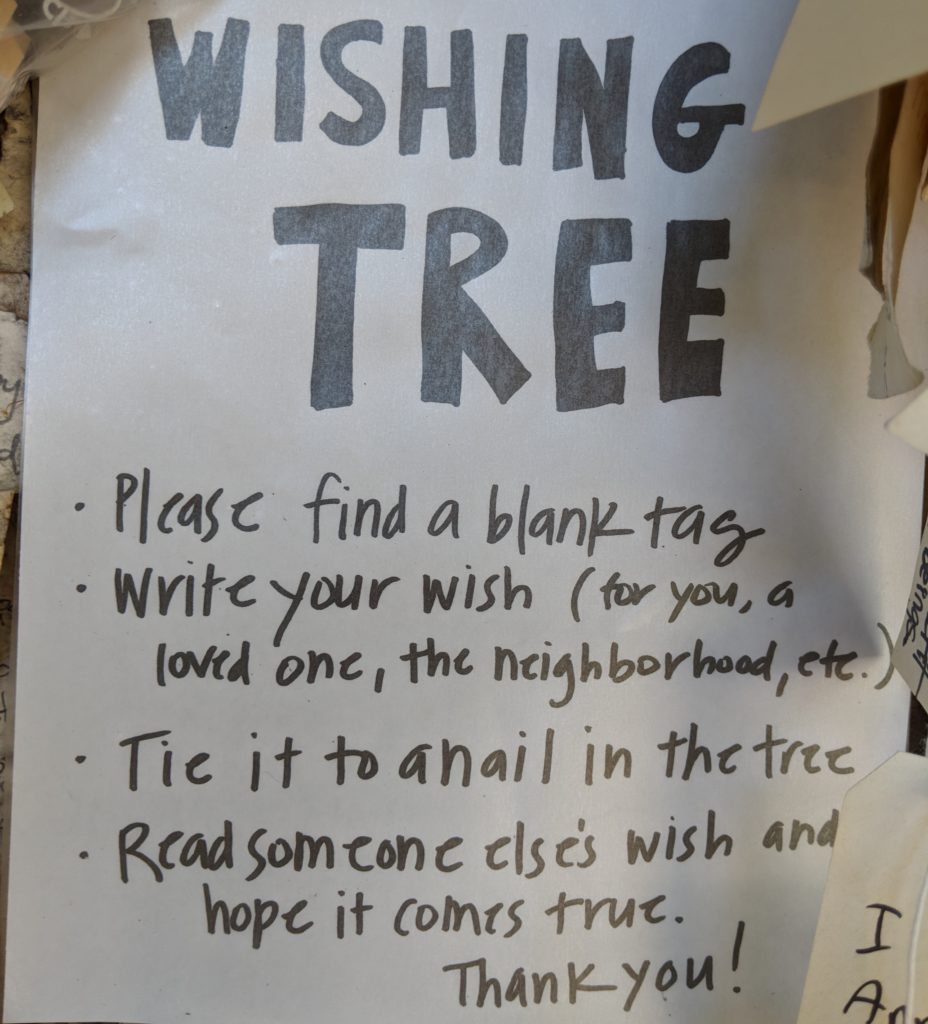 WISHING
TREE
· Please find a blank tag
· Write your wish (for you, a
loved one, the neighborhood, etc.)
· Tie it to a nail in the tree
· Read someone else's wish and
hope it comes true.
Thank you!
I